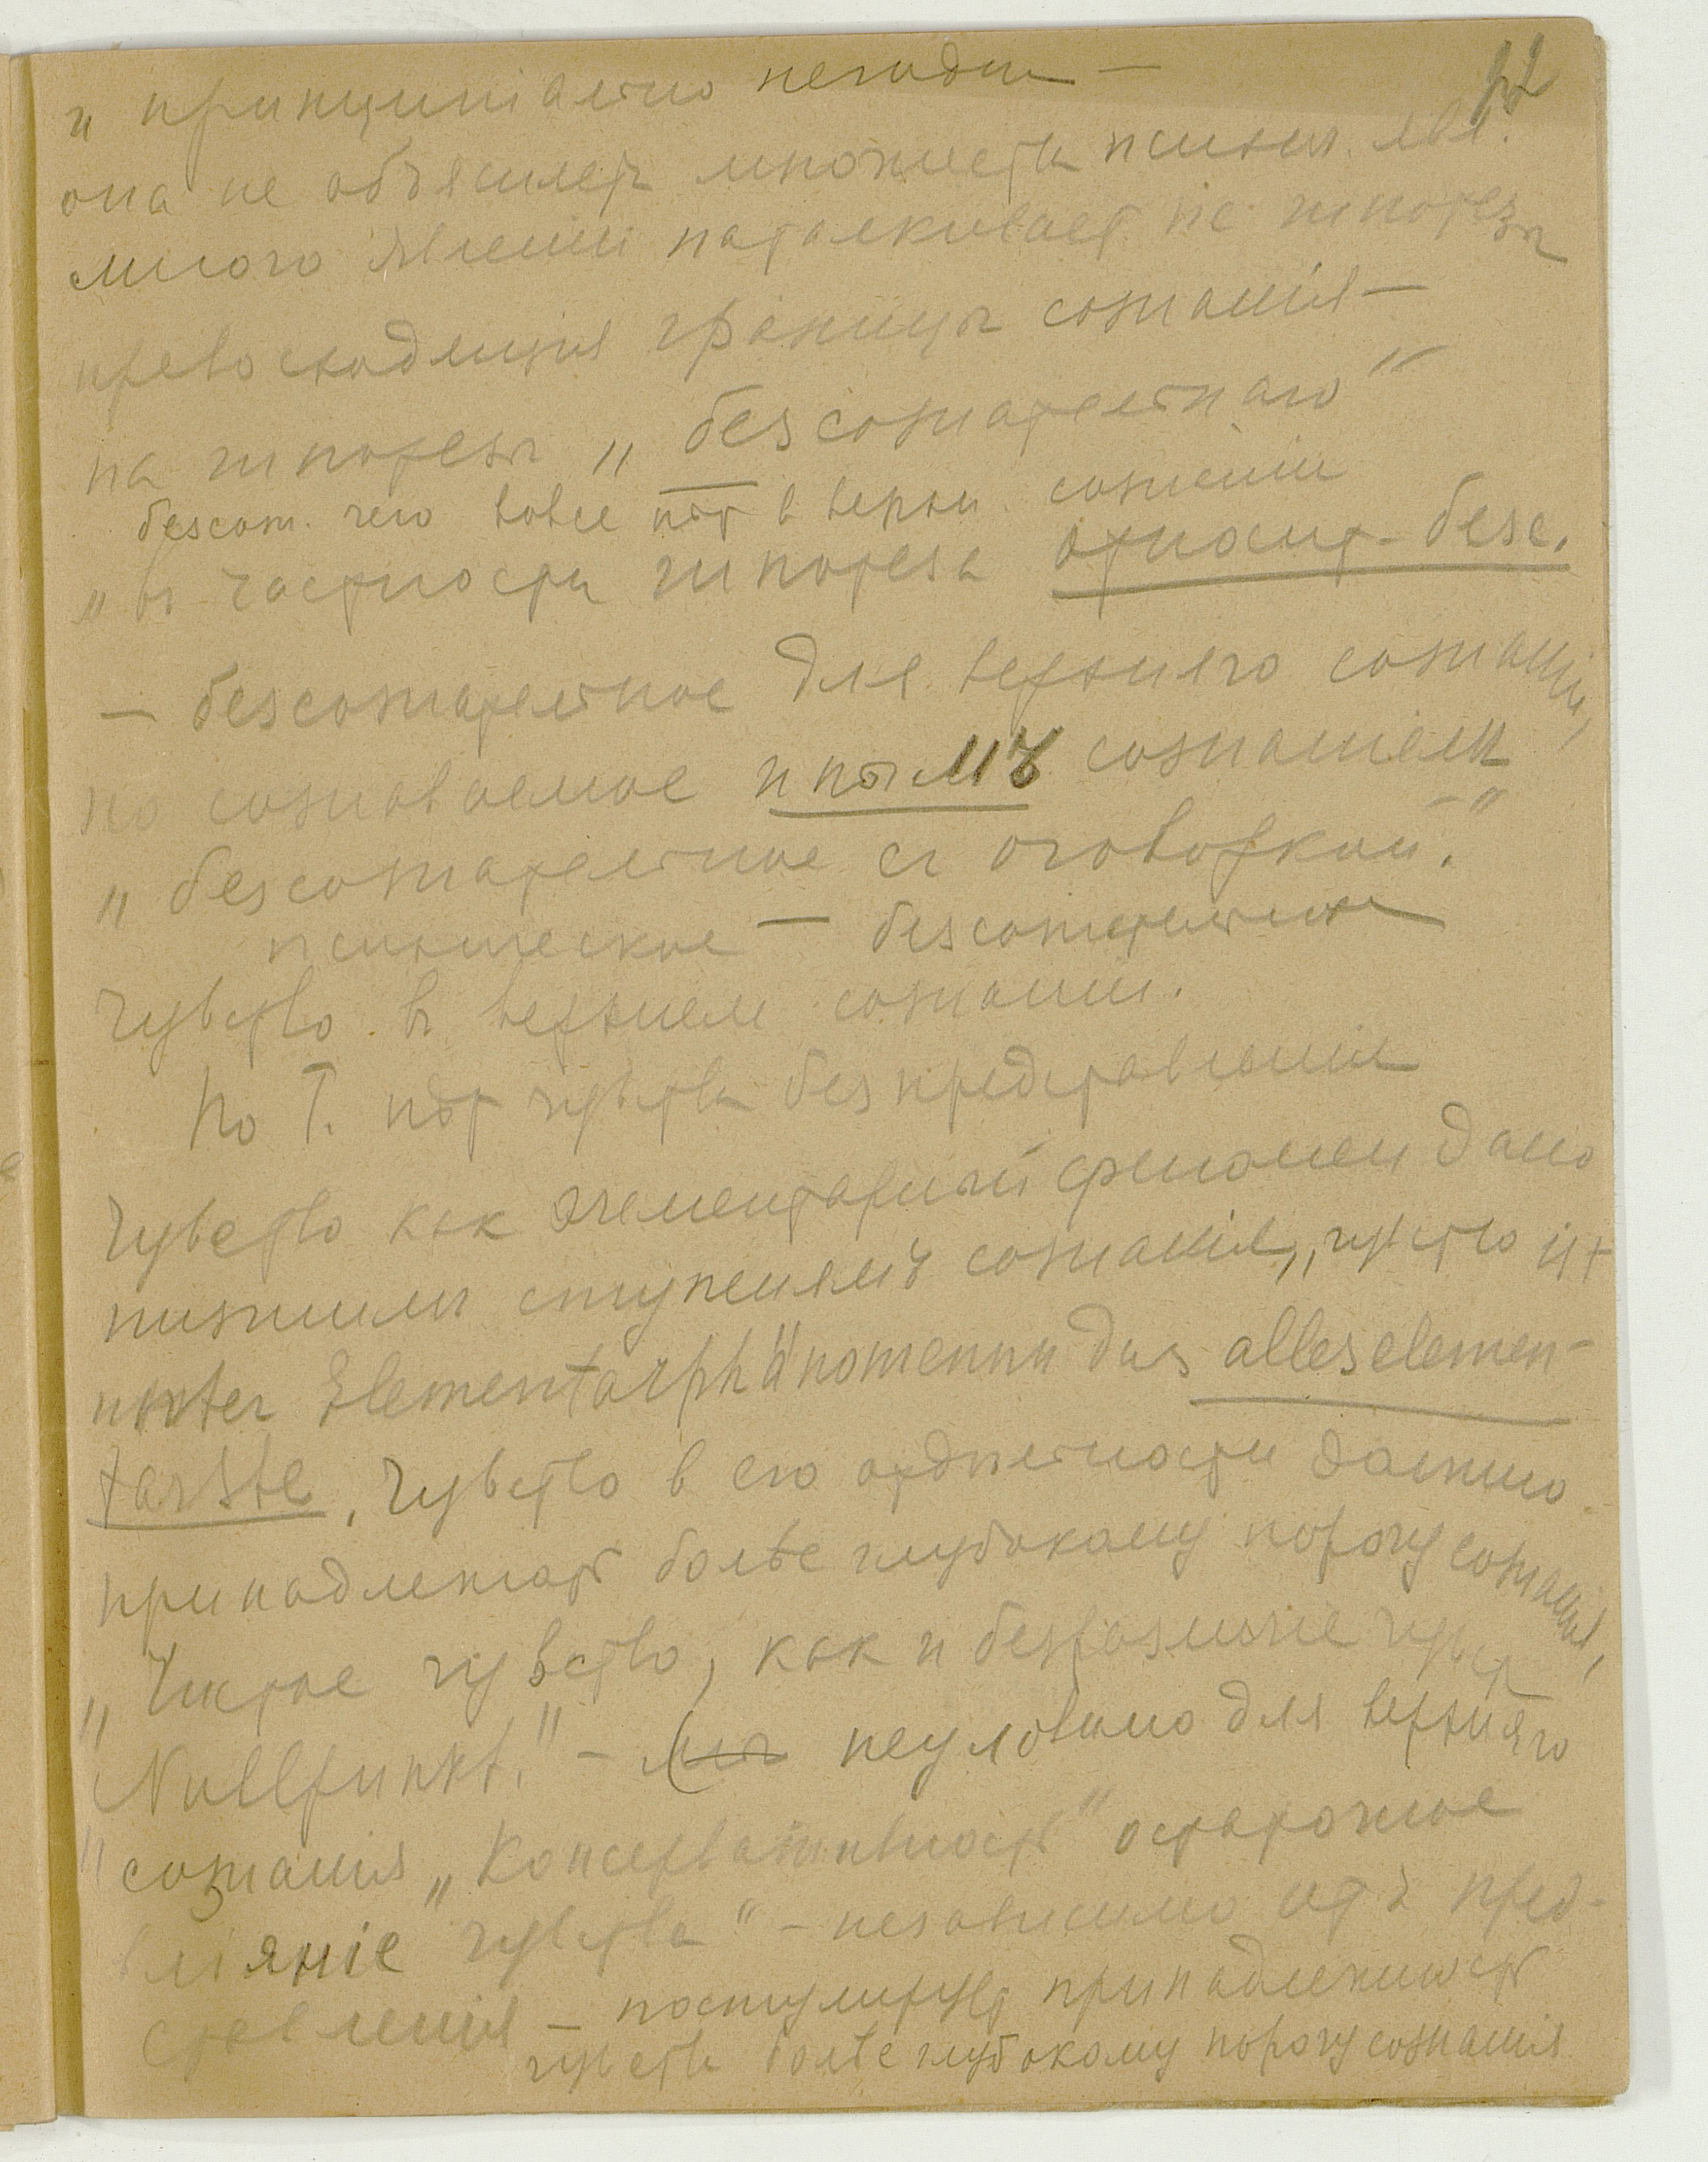 12
и принципиально негодна —
она не объясняетъ множества психич. явл.
много явлений наталкивает на гипотезы
превосходящия границы сознанiя —
на гипотезы „безсознательнаго"
безсозн. чего вовсе нѣт в верхн. сознании
„въ частности гипотеза относит. безс.
— безсознательное для верхняго сознанiя,
но сознаваемое инымъ сознанием —"
„безсознательное съ оговоркой."
психическое — безсознательное
Чувство въ верхнем сознании.
По Т. нѣт чувства без представления
Чувство как элементарный феномен дано
низшимъ ступенямъ сознанiя, „чувство ist
unter Elementarphänomenen das allerelemen-
tarste, Чувство в его отдѣльности должно
принадлежать болѣе глубокому порогу сознанiя,
„Чистое чувство, как и безразличiе чувст
„Nullpunkt." — неуловимо для верхняго
„сознанiя „Консервативность" остаточное
влiянiе чувства" — независимо отъ пред-
ставления — постулирует принадлежность
чувства болѣе глубокому порогу сознанiя